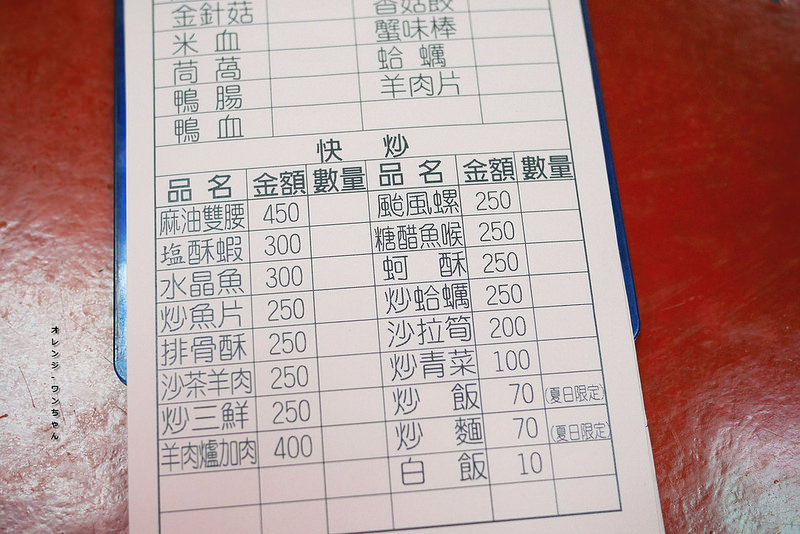 金針菇 香菇餃
米血 蟹味棒
茼蒿 蛤蠣
鴨腸 羊肉片
鴨血
快炒
品名 金額 數量 品名 金額 數量
麻油雙腰 450 颱風螺 250
塩酥蝦 300 糖醋魚喉 250
水晶魚 300 蚵酥 250
炒魚片 250 炒蛤蠣 250
排骨酥 250 沙拉筍 200
沙茶羊肉 250 炒青菜 100
炒三鮮 250 炒飯 70 (夏日限定)
羊肉爐加肉 400 炒麵 70 (夏日限定)
白飯 10
オレンジ・ワンちゃん